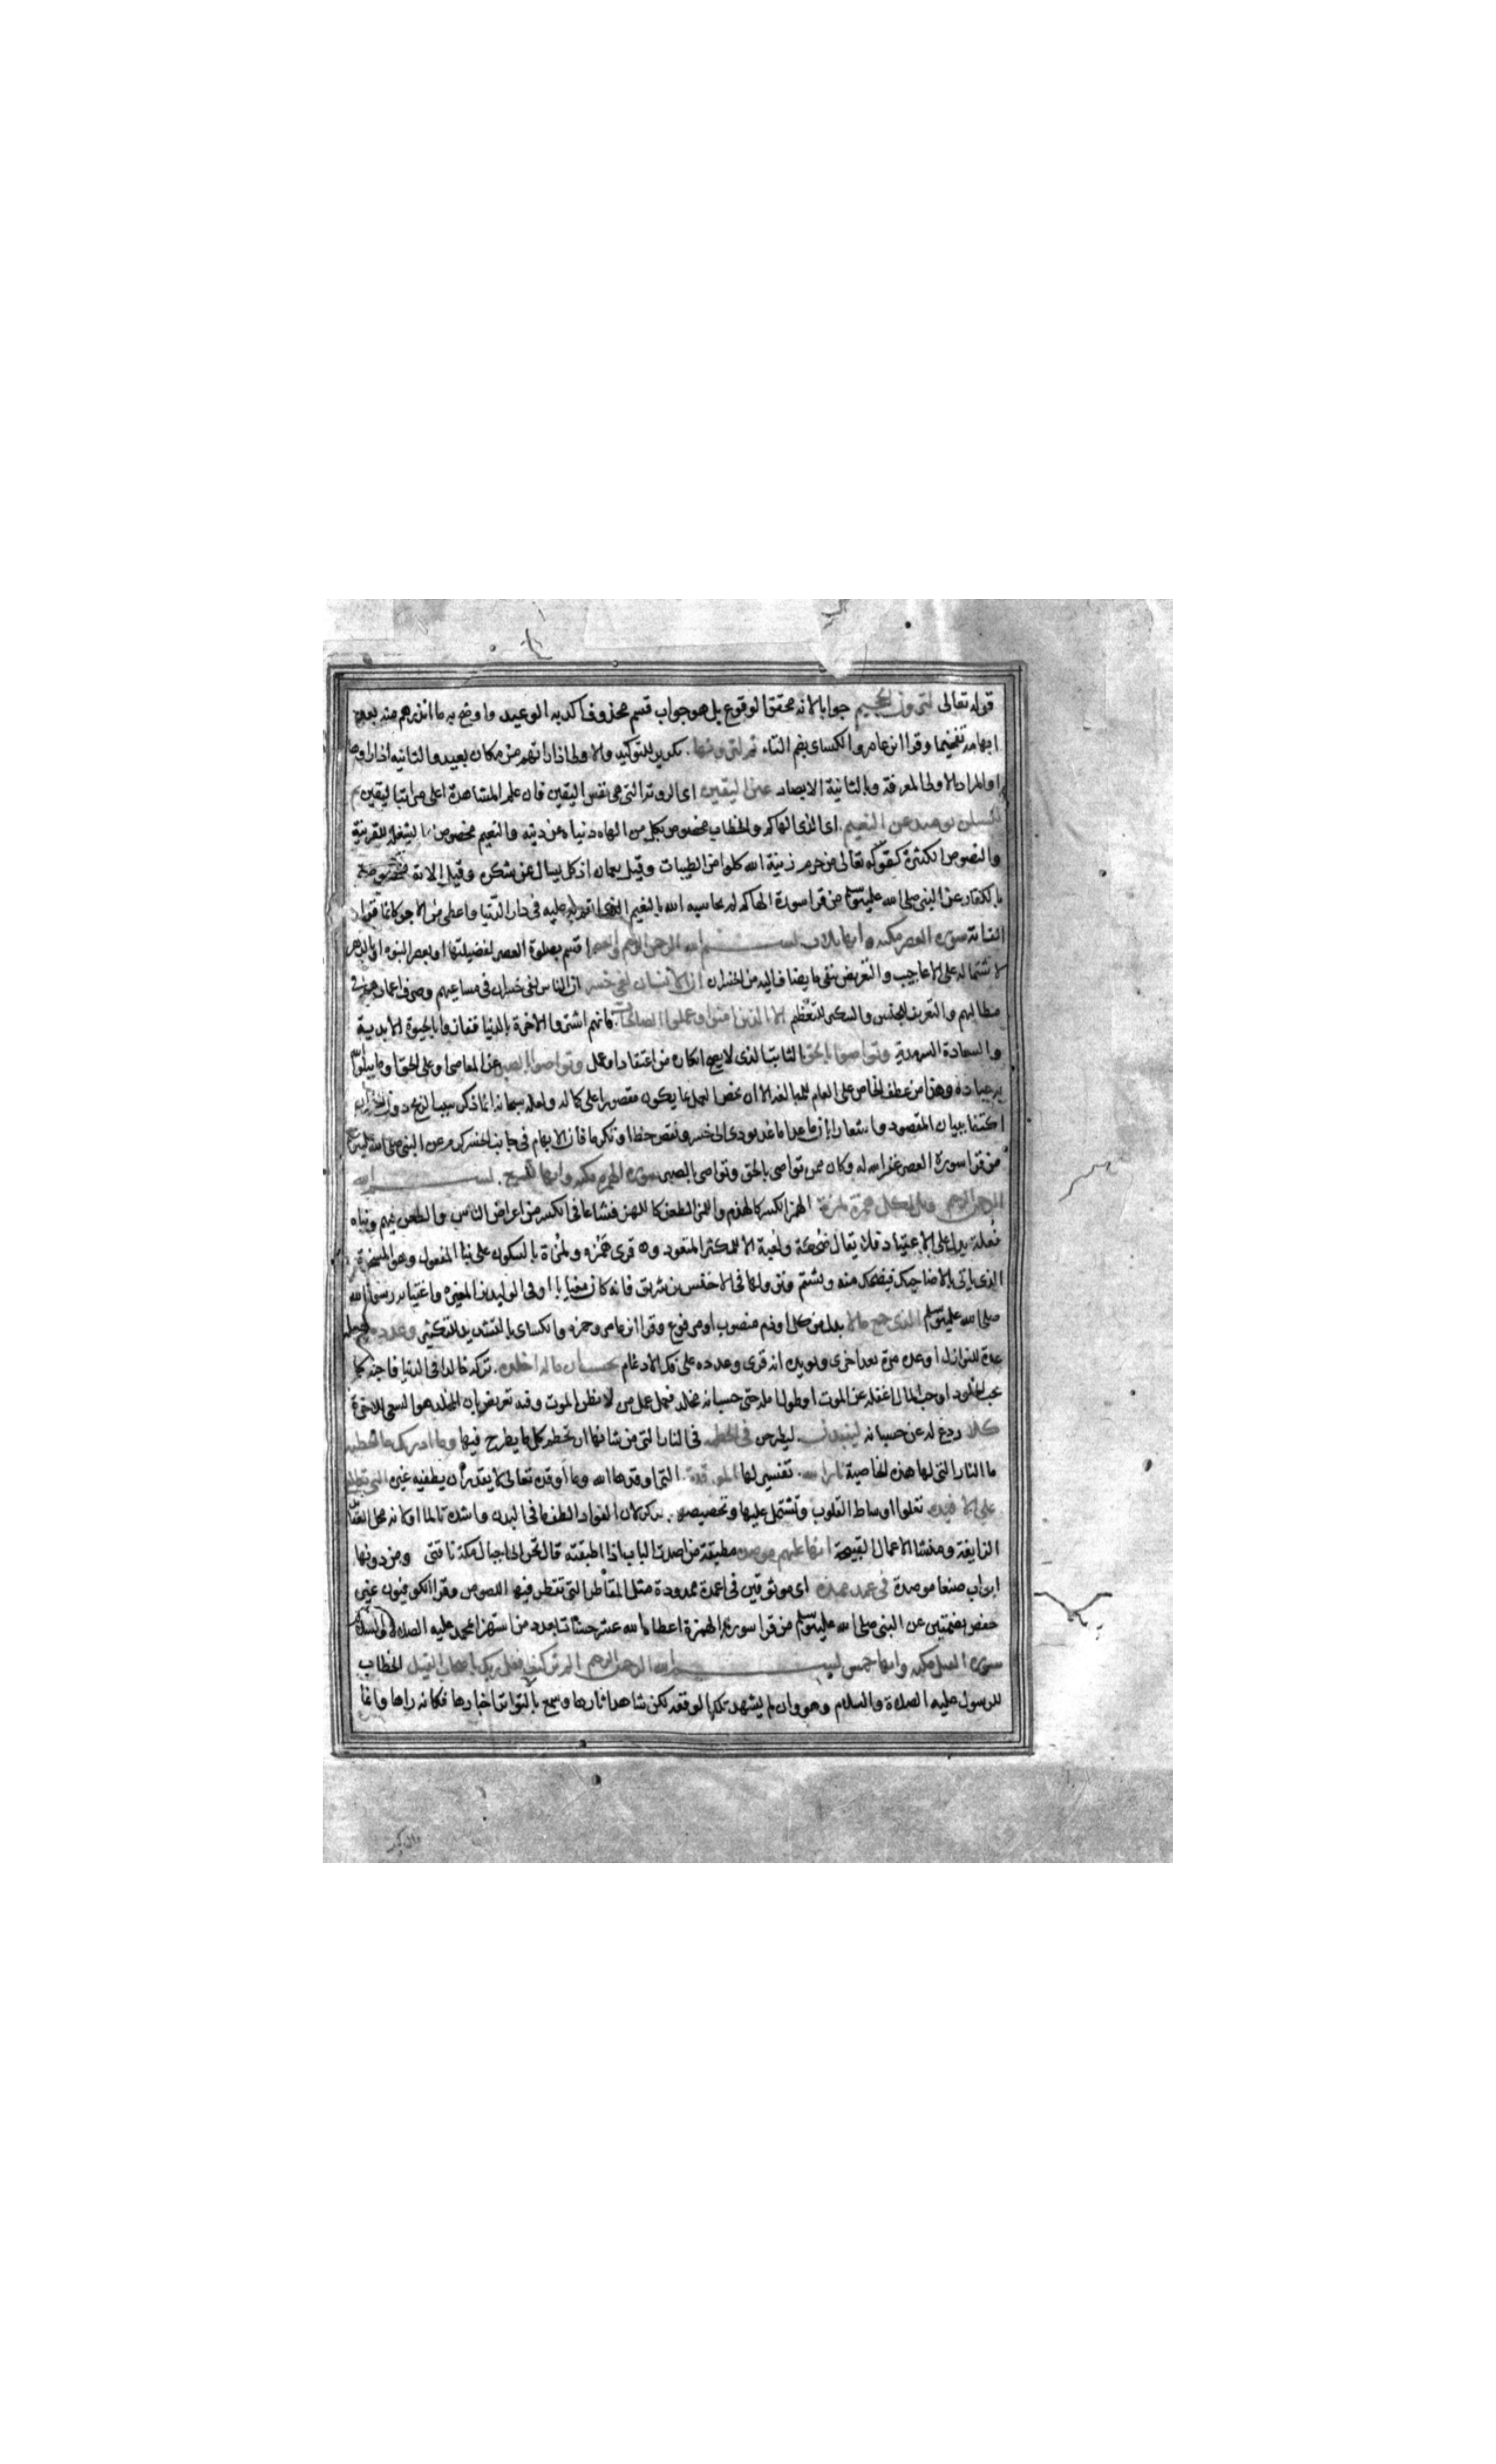 قوله تعالى لترون الجحيم جوابا لانه محقق الوقوع بل هو جواب قسم محذوف اكد به الوعيد واوضح به ما انذرهم منه بعد
ابهامه تفخيما وقرا ابن عامر والكسائى بضم التاء ثم لترونها تكرير للتوكيد والاولى اذا راتهم من مكان بعيد والثانيه اذا اوردوها
او المراد بالاولى المعرفة وبالثانية الابصار عين اليقين اى الروية التى هى نفس اليقين فان علم المشاهدة اعلى مراتب اليقين ثم
لتسئلن يومئذ عن النعيم اى الذى الهاكم والخطاب مخصوص بكل من الهاه دنياه عن دينه والنعيم مخصوص بما يشغله للقرينة
والنصوص الكثيرة كقوله تعالى من حرم زينة الله كلوا من الطيبات وقيل يعمان اذ كل يسال عن شكره وقيل الاية مخصوصة
بالكفار عن النبى صلى الله عليه وسلم من قرا سورة الهاكم لم يحاسبه الله بالنعيم الذى انعم به عليه فى دار الدنيا واعطى من الاجر كانما قرا
الف اية سورة العصر مكيه وايها ثلاث بسم الله الرحمن الرحيم والعصر اقسم بصلوة العصر لفضيلتها او بعصر النبوه او بالدهر
لاشتماله على الاعاجيب والتعريض بنفى ما يضاف اليه من الخسران ان الانسان لفى خسر ان الناس لفى خسران فى مساعيهم وصرف اعمارهم فى
مطالبهم والتعريف للجنس والتنكير للتعظيم الا الذين امنوا وعملوا الصالحات فانهم اشتروا الاخرة بالدنيا ففازوا بالحيوة الابدية
والسعادة السرمدية وتواصوا بالحق الثابت الذى لا يصح انكاره من اعتقاد او عمل وتواصوا بالصبر عن المعاصى او على الحق او ما يبلو الله
به عباده وهذا من عطف الخاص على العام للمبالغة الا ان يخص العمل بما يكون مقصورا على كماله ولعله سبحانه انما ذكر سبب الربح دون الخسران
اكتفا ببيان المقصود واشعارا بان ما عدا ما عد يودى الى خسر ونقص حظ او تكرما فان الابهام فى جانب الخسر كرم عن النبى صلى الله عليه وسلم
من قرا سورة العصر غفر الله له وكان ممن تواصى بالحق وتواصى بالصبر سورة الهمزه مكيه وايها تسع بسم الله
الرحمن الرحيم ويل لكل همزة لمزة الهمز الكسر كالهزم واللمز الطعن كاللهز فشاعا فى الكسر من اعراض الناس والطعن فيهم وبناء
فعلة يدل على الاعتياد فلا يقال ضحكة ولعبة الا للمكثر المتعود وقرى همزه ولمزة بالسكون على بنا المفعول وهو المسخرة
الذى ياتى بالاضاحيك فيضحك منه ويشتم ونزولها فى الاخنس بن شريق فانه كان مغتابا او فى الوليد بن المغيره واغتيابه رسول الله
صلى الله عليه وسلم الذى جمع مالا بدل من كل او ذم منصوب او مرفوع وقرا ابن عامر وحمزه والكسائى بالتشديد للتكثير وعدده وجعله
عدة للنوازل او عده مرة بعد اخرى ويويده انه قرى وعدده على فك الادغام يحسب ان ماله اخلده تركه خالدا فى الدنيا فاحبه كما
يحب الخلود او حب المال اغفله عن الموت او طول امله حتى حسب انه مخلد فعمل عمل من لا يظن الموت وفيه تعريض بان المخلد هو السعى للاخرة
كلا ردع له عن حسبانه لينبذن ليطرحن فى الحطمه فى النار التى من شانها ان تحطم كل ما يطرح فيها وما ادريك ما الحطمه
ما النار التى لها هذه الخاصية نار الله تفسير لها الموقدة التى اوقدها الله وما اوقده تعالى لا يقدر ان يطفيه غيره التى تطلع
على الافئدة تعلوا اوساط القلوب وتشتمل عليها وتخصيصها بالذكر لان الفواد الطف ما فى البدن واشده تالما او لانه محل العقائد
الزايغة ومنشا الاعمال القبيحة انها عليهم موصده مطبقة من اصدت الباب اذا اطبقته قال تحن الى اجبال مكة ناقتى ومن دونها
ابواب صنعا موصدة فى عمد ممدده اى موثوقين فى اعمدة ممدودة مثل المقاطر التى تقطر فيها اللصوص وقرا الكوفيون غير
حفص بضمتين عن النبى صلى الله عليه وسلم من قرا سورة الهمزة اعطاه الله عشر حسنات بعدد من استهزا بمحمد عليه الصلاة والسلام
سورة الفيل مكيه وايها خمس بسم الله الرحمن الرحيم الم تر كيف فعل ربك باصحاب الفيل الخطاب
للرسول عليه الصلاة والسلام وهو وان لم يشهد تلك الوقعة لكن شاهد اثارها وسمع بالتواتر اخبارها فكانه راها وانما